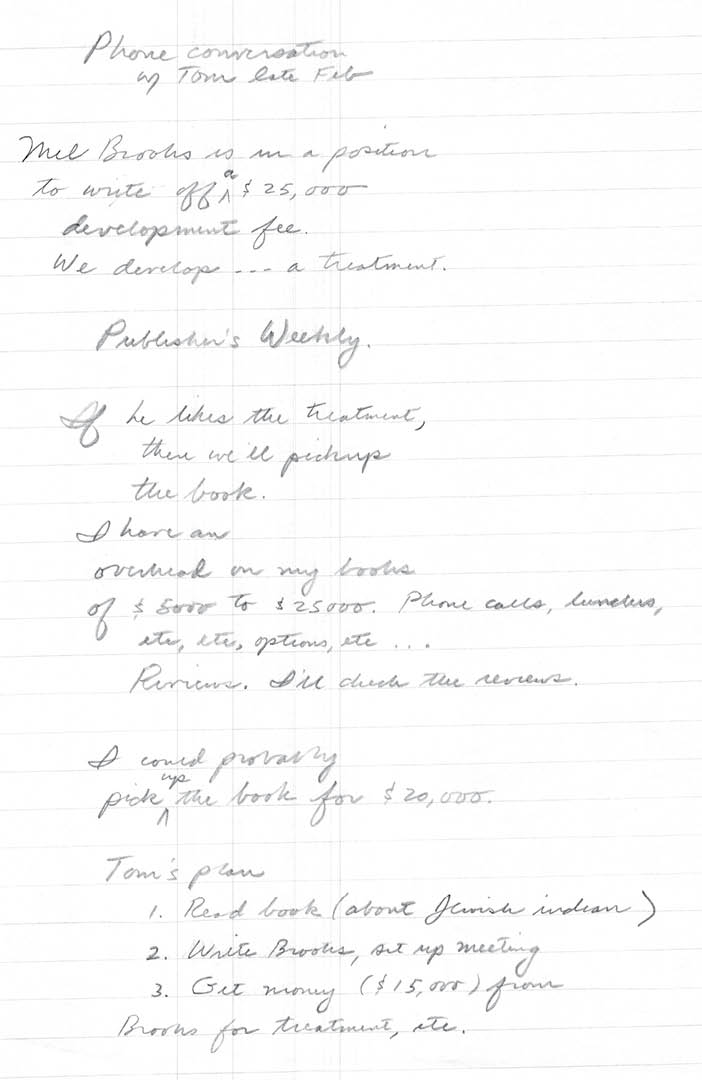 Phone conversation
w/ Tom late Feb
Mel Brooks is in a position
to write off a $25,000
development fee.
We develop --- a treatment.
Publisher's Weekly.
If he likes the treatment,
then we'll pickup
the book.
I have an
overhead on my books
of $5000 to $25000. Phone calls, lunches,
etc, etc, options, etc ...
Reviews. I'll check the reviews.
I could probably
pick up the book for $20,000.
Tom's plan
1. Read book (about Jewish indian)
2. Write Brooks, set up meeting
3. Get money ($15,000) from
Brooks for treatment, etc.